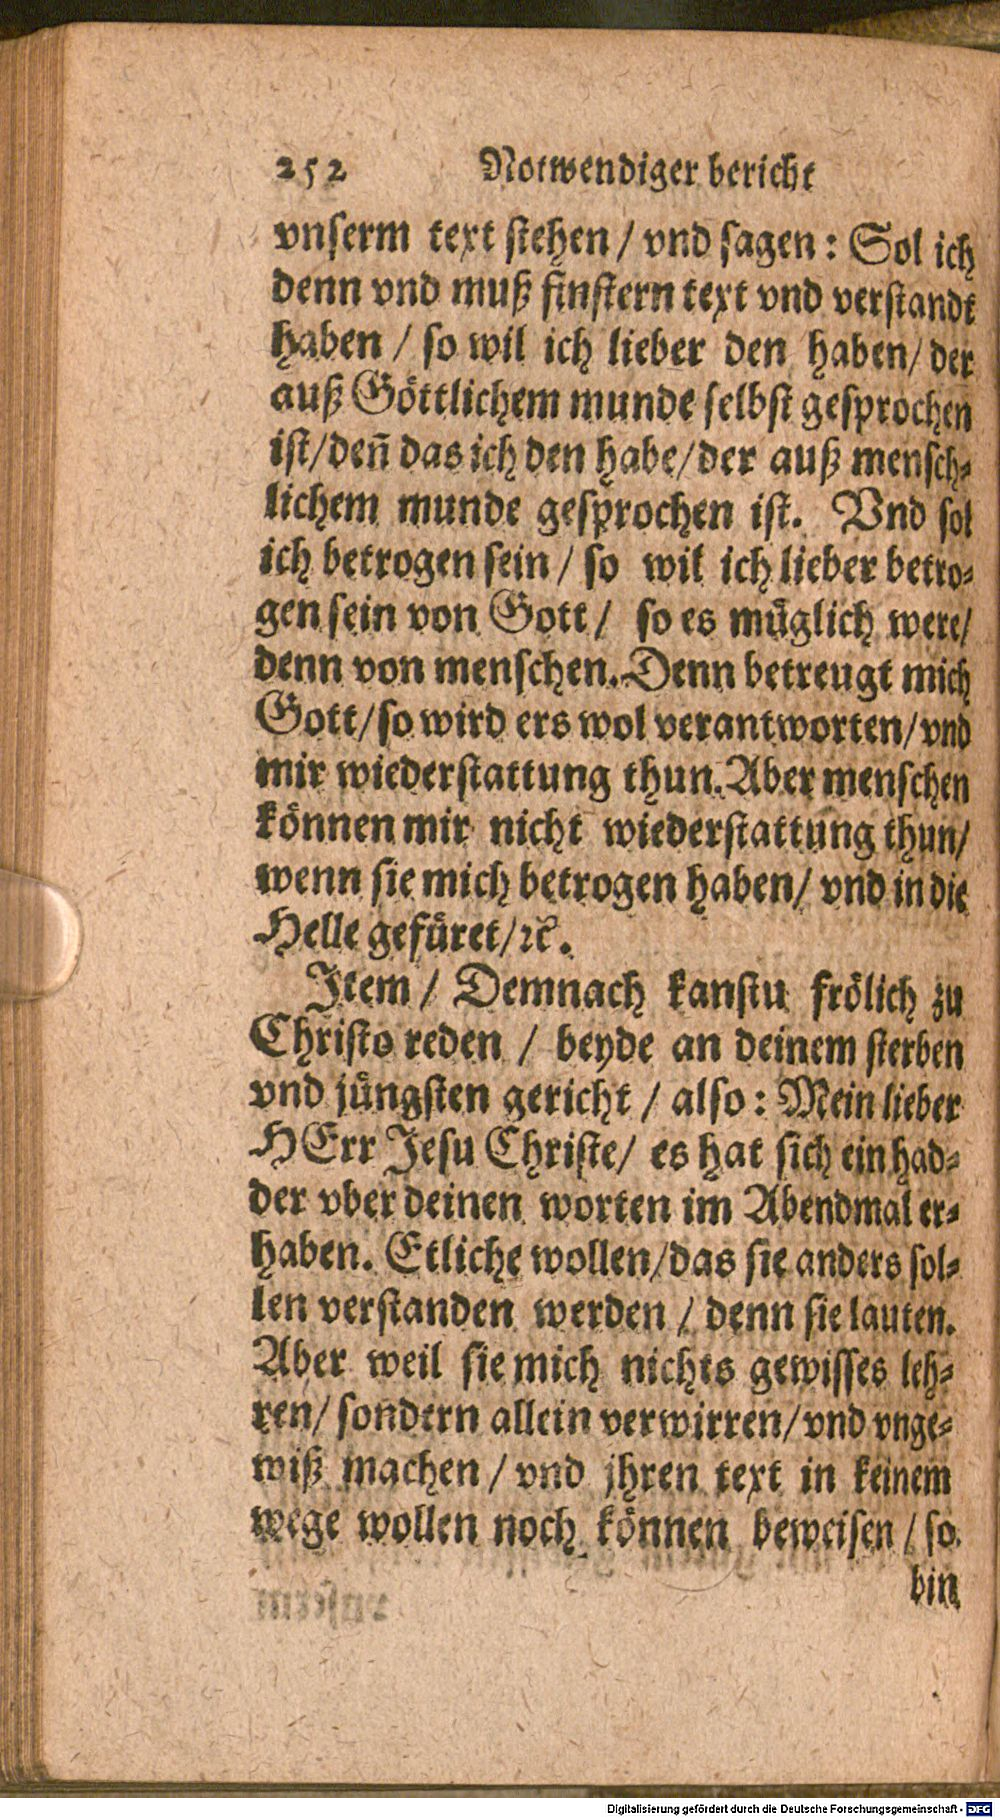 252 Notwendiger bericht
vnserm text stehen / vnd sagen : Sol ich
denn vnd muß finstern text vnd verstandt
haben / so wil ich lieber den haben / der
auß Göttlichem munde selbst gesprochen
ist / deñ das ich den habe / der auß mensch-
lichem munde gesprochen ist. Vnd sol
ich betrogen sein / so wil ich lieber betro-
gen sein von Gott / so es müglich were /
denn von menschen. Denn betreugt mich
Gott / so wird ers wol verantworten / vnd
mir wiederstattung thun. Aber menschen
können mir nicht wiederstattung thun /
wenn sie mich betrogen haben / vnd in die
Helle gefüret / ꝛc.
Item / Demnach kanstu frölich zu
Christo reden / beyde an deinem sterben
vnd jüngsten gericht / also : Mein lieber
HErr Jesu Christe / es hat sich ein had-
der vber deinen worten im Abendmal er-
haben. Etliche wollen / das sie anders sol-
len verstanden werden / denn sie lauten.
Aber weil sie mich nichts gewisses leh-
ren / sondern allein verwirren / vnd vnge-
wiß machen / vnd jhren text in keinem
wege wollen noch können beweisen / so
bin
Digitalisierung gefördert durch die Deutsche Forschungsgemeinschaft - DFG